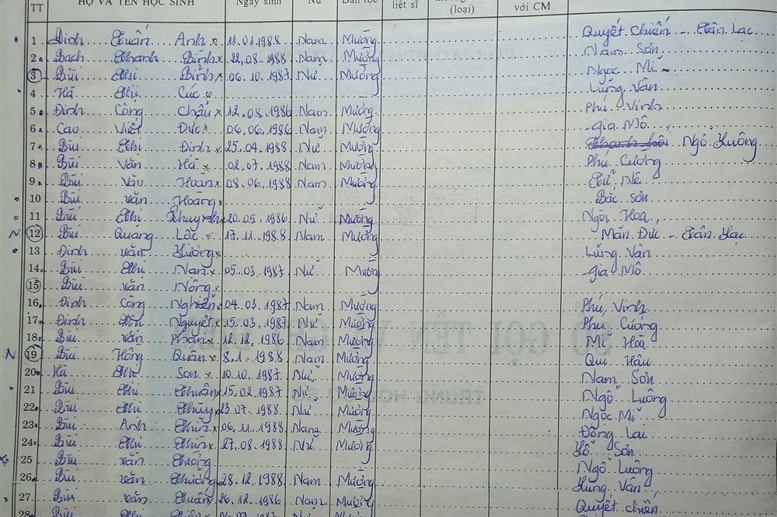 TT HỌ VÀ TÊN HỌC SINH Ngày sinh Nữ Dân tộc liệt sĩ (loại) với CM
1 Đinh Tuấn Anh x 11.01.1988 Nam Mường Quyết Chiến - Tân Lạc
2 Bạch Thanh Bình x 22.08.1988 Nam Mường Nam Sơn
3 Bùi Thị Bình x 06.10.1987 Nữ Mường Ngọc Mĩ
4 Hà Thị Cúc x Lũng Vân
5 Đinh Công Chấu x 12.08.1986 Nam Mường Phú Vinh
6 Cao Việt Đức x 06.06.1986 Nam Mường Gia Mô
7 Bùi Thị Định x 25.04.1988 Nữ Mường Ngô Luông
8 Bùi Văn Hà x 02.07.1988 Nam Mường Phú Cường
9 Bùi Văn Hoan x 08.06.1988 Nam Mường Tử Nê
10 Bùi văn Hoàng Bắc Sơn
11 Bùi Thị Khuynh x 20.05.1986 Nữ Mường Ngòi Hoa
12 Bùi Quang Lốc x 17.11.1988 Nam Mường Mãn Đức - Tân Lạc
13 Đinh văn Lũng Vân
14 Bùi Thị Nam x 05.03.1987 Nữ Mường Gia Mô
15 Bùi văn Nông
16 Đinh Công Nghiên x 04.03.1987 Nam Mường Phú Vinh
17 Đinh Thị Nguyệt x 15.03.1987 Nữ Mường Phú Cường
18 Bùi văn Phấn x 12.12.1986 Nam Mường Mĩ Hoà
19 Bùi Hồng Quân x 8.1.1988 Nam Mường Qui Hậu
20 Hà Thị Son x 10.10.1987 Nữ Mường Nam Sơn
21 Bùi Thị Thuân x 15.02.1987 Nữ Mường Ngổ Luông
22 Bùi Thị Thủy x 13.07.1988 Nữ Mường Ngọc Mĩ
23 Bùi Anh 06.11.1988 Nam Mường Đông Lai
24 Bùi Thị 27.08.1988 Nữ Mường Sơn
25 Bùi văn Thường Ngổ Luông
26 Bùi văn 28.12.1986 Nam Mường Lũng Vân
27 Bùi văn Tuấn x 26.12.1986 Nam Mường Quyết chiến
28 Bùi